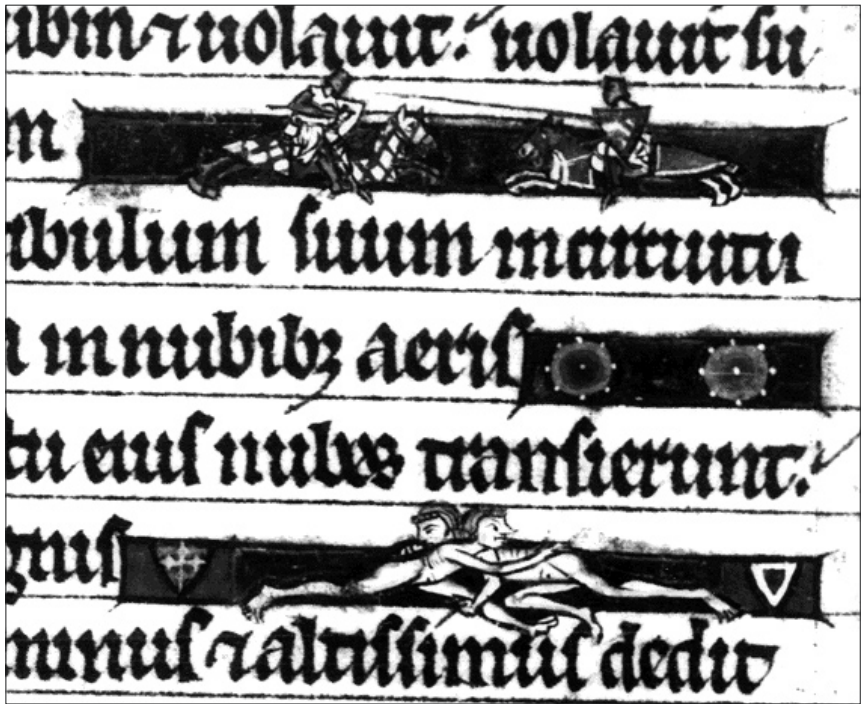 ubin ⁊ uolauit: uolauit su
m
ibulum suum in circuitu
a in nubibꝫ aeris
tu eius nubes transierunt:
gnis
minus ⁊ altissimus dedit